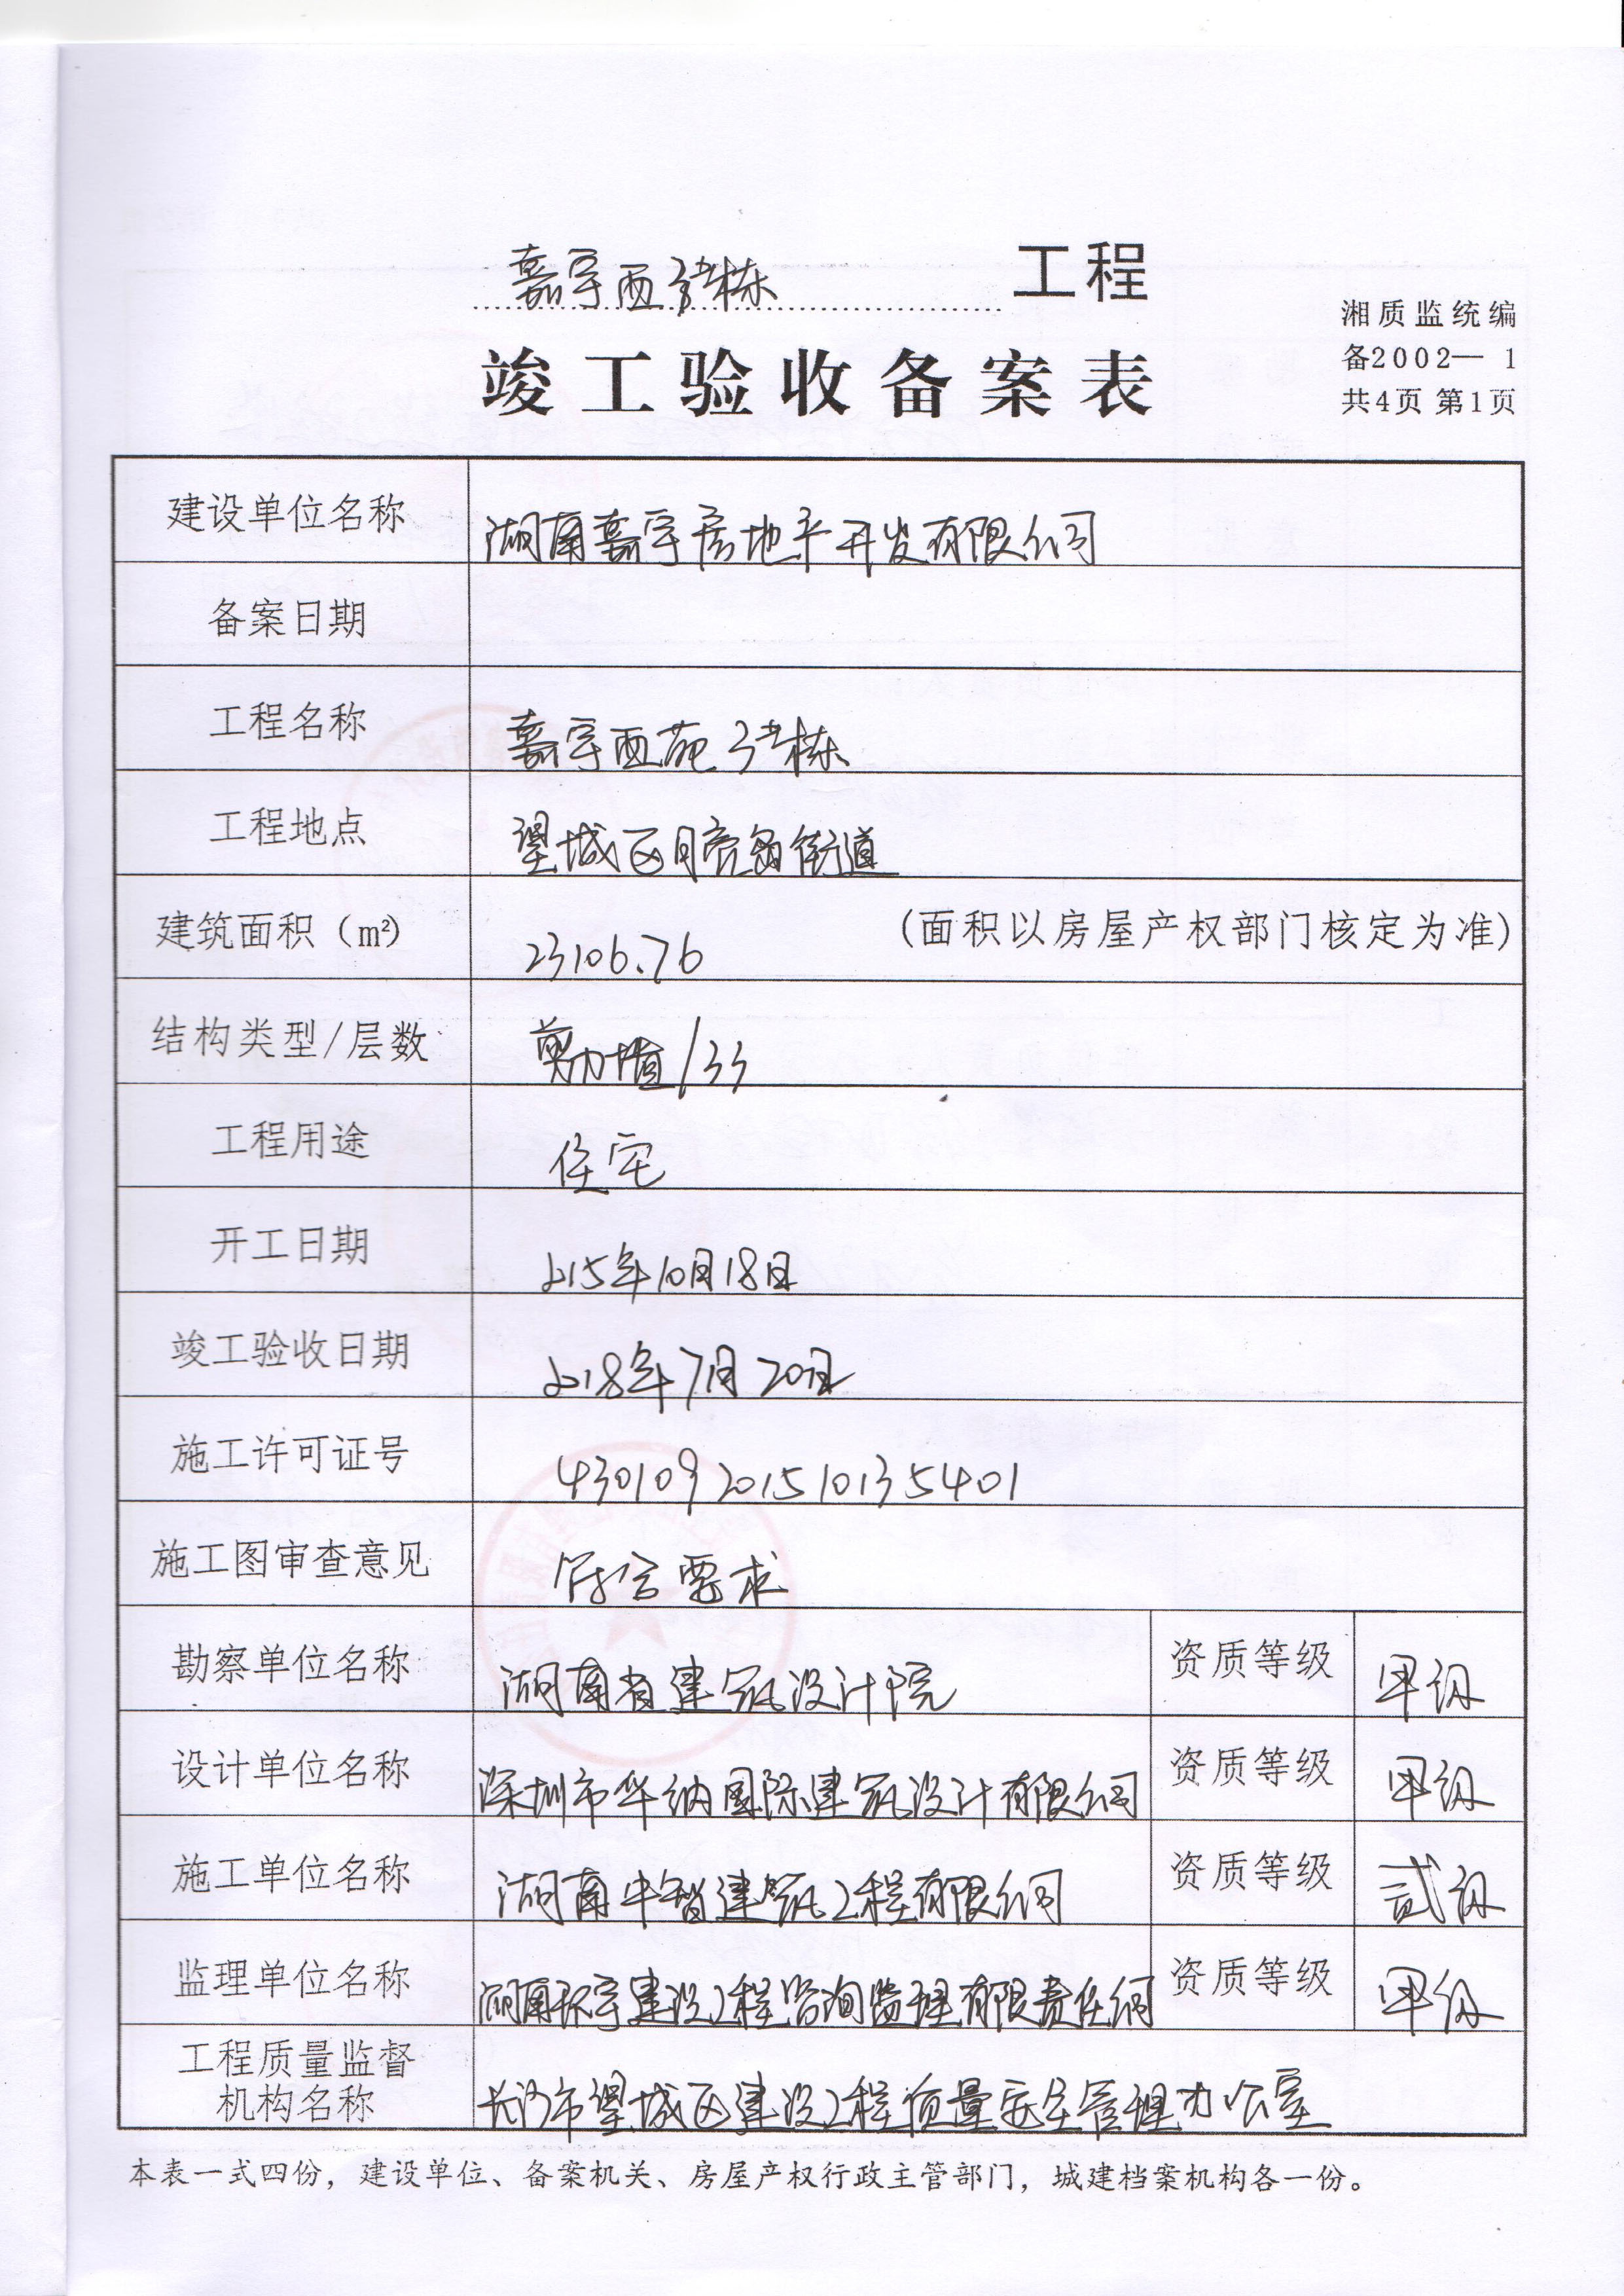 嘉宇西3#栋 工程
竣工验收备案表
湘质监统编
备2002—1
共4页 第1页
建设单位名称 湖南嘉宇房地产开发有限公司
备案日期
工程名称 嘉宇西苑3#栋
工程地点 望城区月亮岛街道
建筑面积（m²） 23106.76 (面积以房屋产权部门核定为准)
结构类型/层数 剪力墙/33
工程用途 住宅
开工日期 2015年10月18日
竣工验收日期 2018年7月20日
施工许可证号 430109201510135401
施工图审查意见 符合要求
勘察单位名称 湖南省建筑设计院 资质等级 甲级
设计单位名称 深圳市华纳国际建筑设计有限公司 资质等级 甲级
施工单位名称 湖南中智建筑工程有限公司 资质等级 贰级
监理单位名称 湖南环宇建设工程咨询监理有限责任公司 资质等级 甲级
工程质量监督
机构名称 长沙市望城区建设工程质量安全管理办公室
本表一式四份，建设单位、备案机关、房屋产权行政主管部门，城建档案机构各一份。